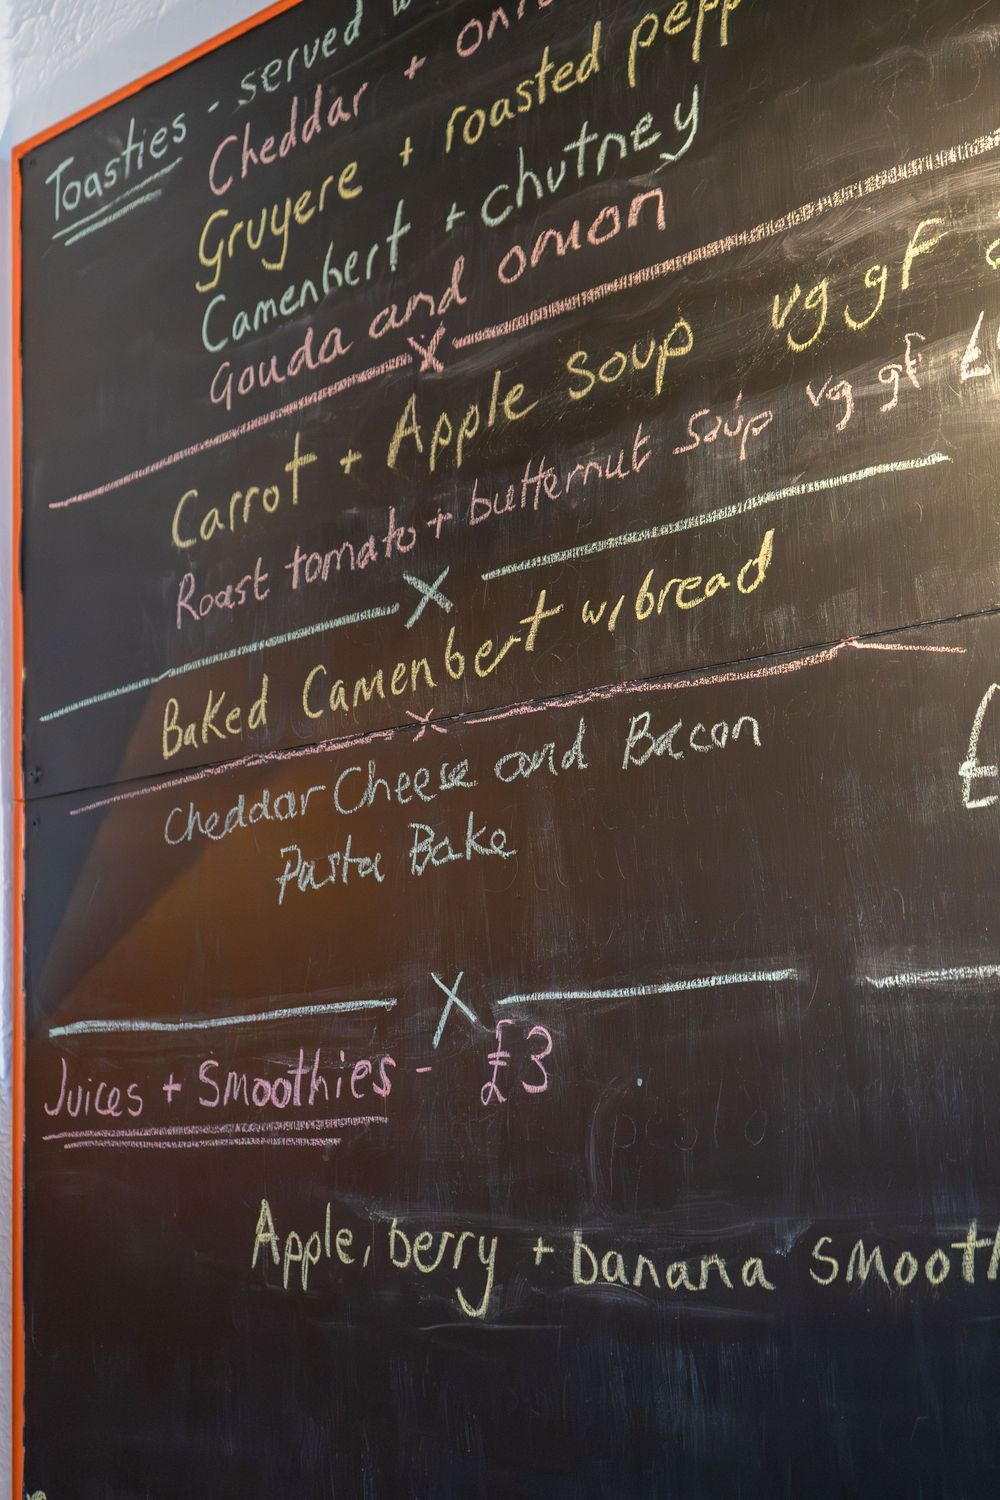 Toasties - served
Cheddar + onio
Gruyere + roasted pepp
Camenbert + chutney
Gouda and onion
X
Carrot + Apple Soup vg gF
Roast tomato + butternut Soup vg gF £
X
Baked Camenbert w/bread
X
Cheddar Cheese and Bacon
Pasta Bake
£
X
Juices + Smoothies - £3
Apple, berry + banana smooth